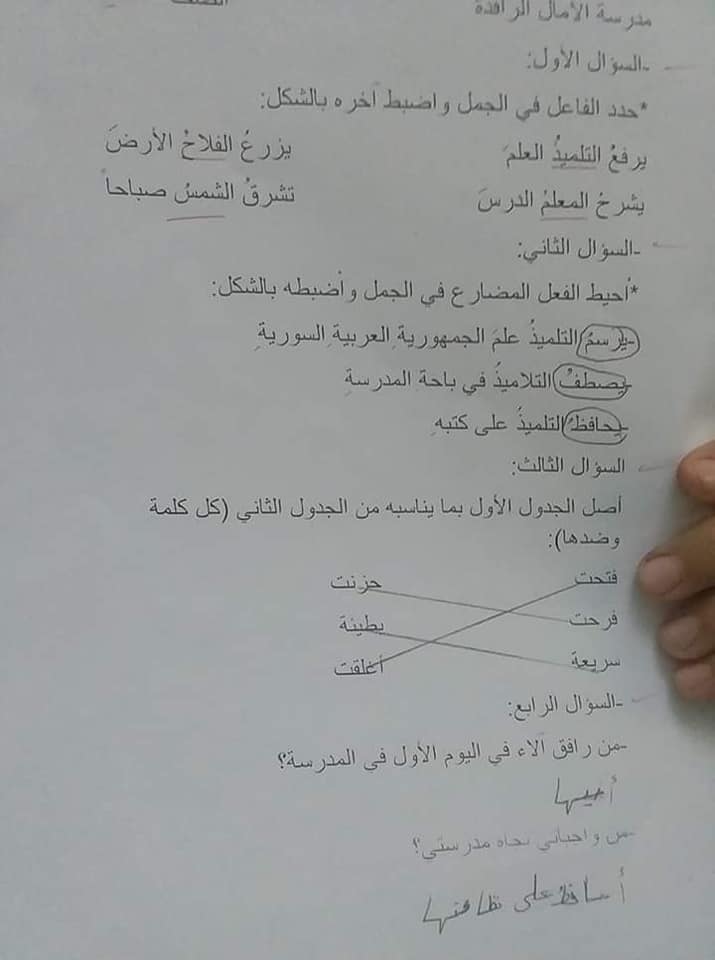 مدرسة الآمال الرافدة
-السؤال الأول:
*حدد الفاعل في الجمل واضبط آخره بالشكل:
يرفعُ التلميذُ العلمَ يزرعُ الفلاحُ الأرضَ
يشرحُ المعلمُ الدرسَ تشرقُ الشمسُ صباحاً
-السؤال الثاني:
*أحيط الفعل المضارع في الجمل وأضبطه بالشكل:
-يرسمُ التلميذُ علمَ الجمهوريةِ العربيةِ السوريةِ
-يصطفُ التلاميذُ في باحة المدرسةِ
-يحافظُ التلميذُ على كتبهِ
السؤال الثالث:
أصل الجدول الأول بما يناسبه من الجدول الثاني (كل كلمة
وضدها):
فتحت حزنت
فرحت بطيئة
سريعة أغلقت
-السؤال الرابع:
-من رافق آلاء في اليوم الأول في المدرسة؟
-من واجباتي تجاه مدرستي؟
على نظافتها